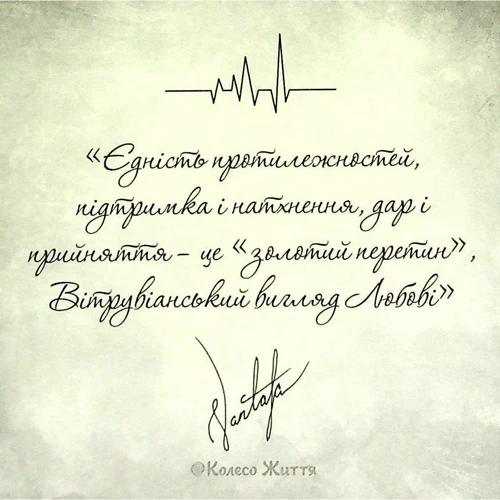 «Єдність протилежностей,
підтримка і натхнення, дар і
прийняття – це «золотий перетин»,
Вітрувіанський вигляд Любові»
@Колесо Життя